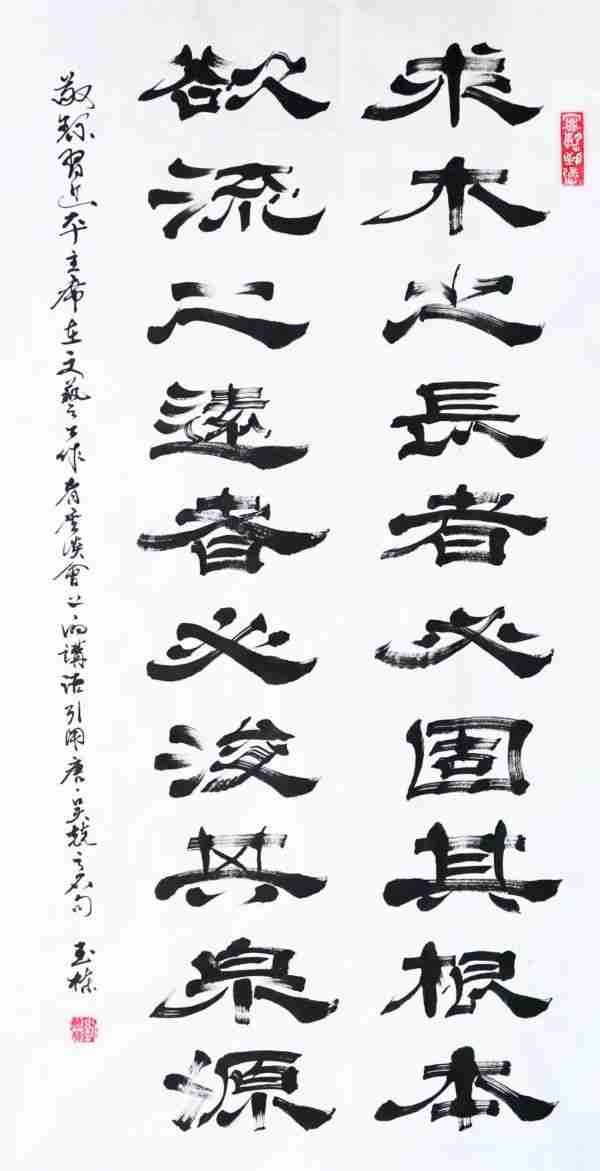 求木之長者必固其根本
欲流之遠者必浚其泉源
敬錄習近平主席在文藝工作者座談會上的講話引用唐·吳兢之名句